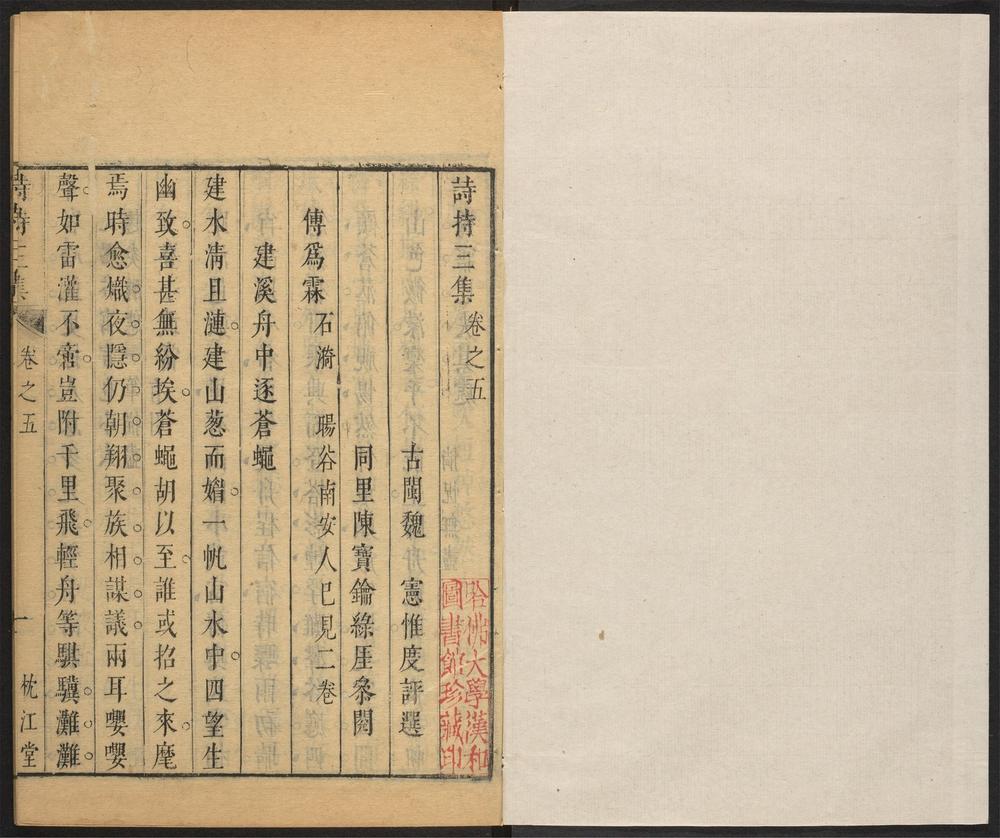 詩持三集 卷之五
古閩魏 憲惟度評選
同里陳寶鑰綠厓叅閱
傅爲霖 石漪 暘谷南安人巳見二卷
建溪舟中逐蒼蠅
建水清且漣建山葱而媚一帆山水中四望生
幽致喜甚無紛埃蒼蠅胡以至誰或招之來麾
焉時愈熾夜隱仍朝翔聚族相謀議兩耳嚶嚶
聲如雷灌不啻豈附千里飛輕舟等騏驥灘灘
詩持三集 卷之五 一 枕江堂
哈佛大學漢和
圖書館珍藏印